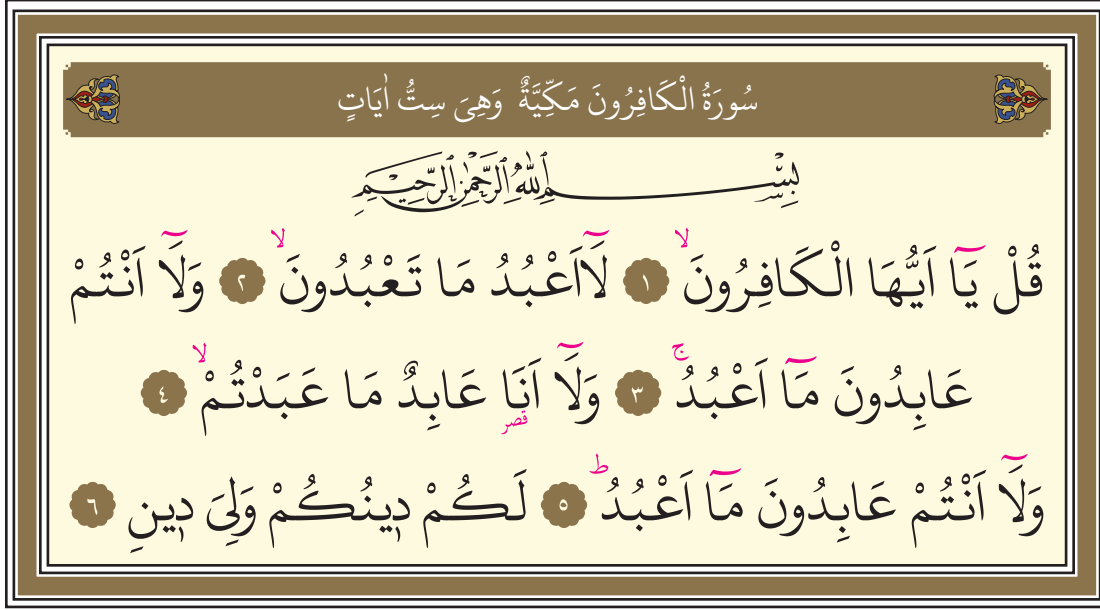 سُورَةُ الْكَافِرُونَ مَكِّيَّةٌ وَهِىَ سِتُّ اٰيَاتٍ
بِسْمِ اللّٰهِ الرَّحْمٰنِ الرَّحِيمِ
قُلْ يَٓا اَيُّهَا الْكَافِرُونَۙ ﴿١﴾ لَٓااَعْبُدُ مَا تَعْبُدُونَۙ ﴿٢﴾ وَلَٓا اَنْتُمْ
عَابِدُونَ مَٓا اَعْبُدُۚ ﴿٣﴾ وَلَٓا اَنَا۬ عَابِدٌ مَا عَبَدْتُمْۙ ﴿٤﴾
قصر
وَلَٓا اَنْتُمْ عَابِدُونَ مَٓا اَعْبُدُۜ ﴿٥﴾ لَكُمْ دٖينُكُمْ وَلِىَ دٖينِ ﴿٦﴾